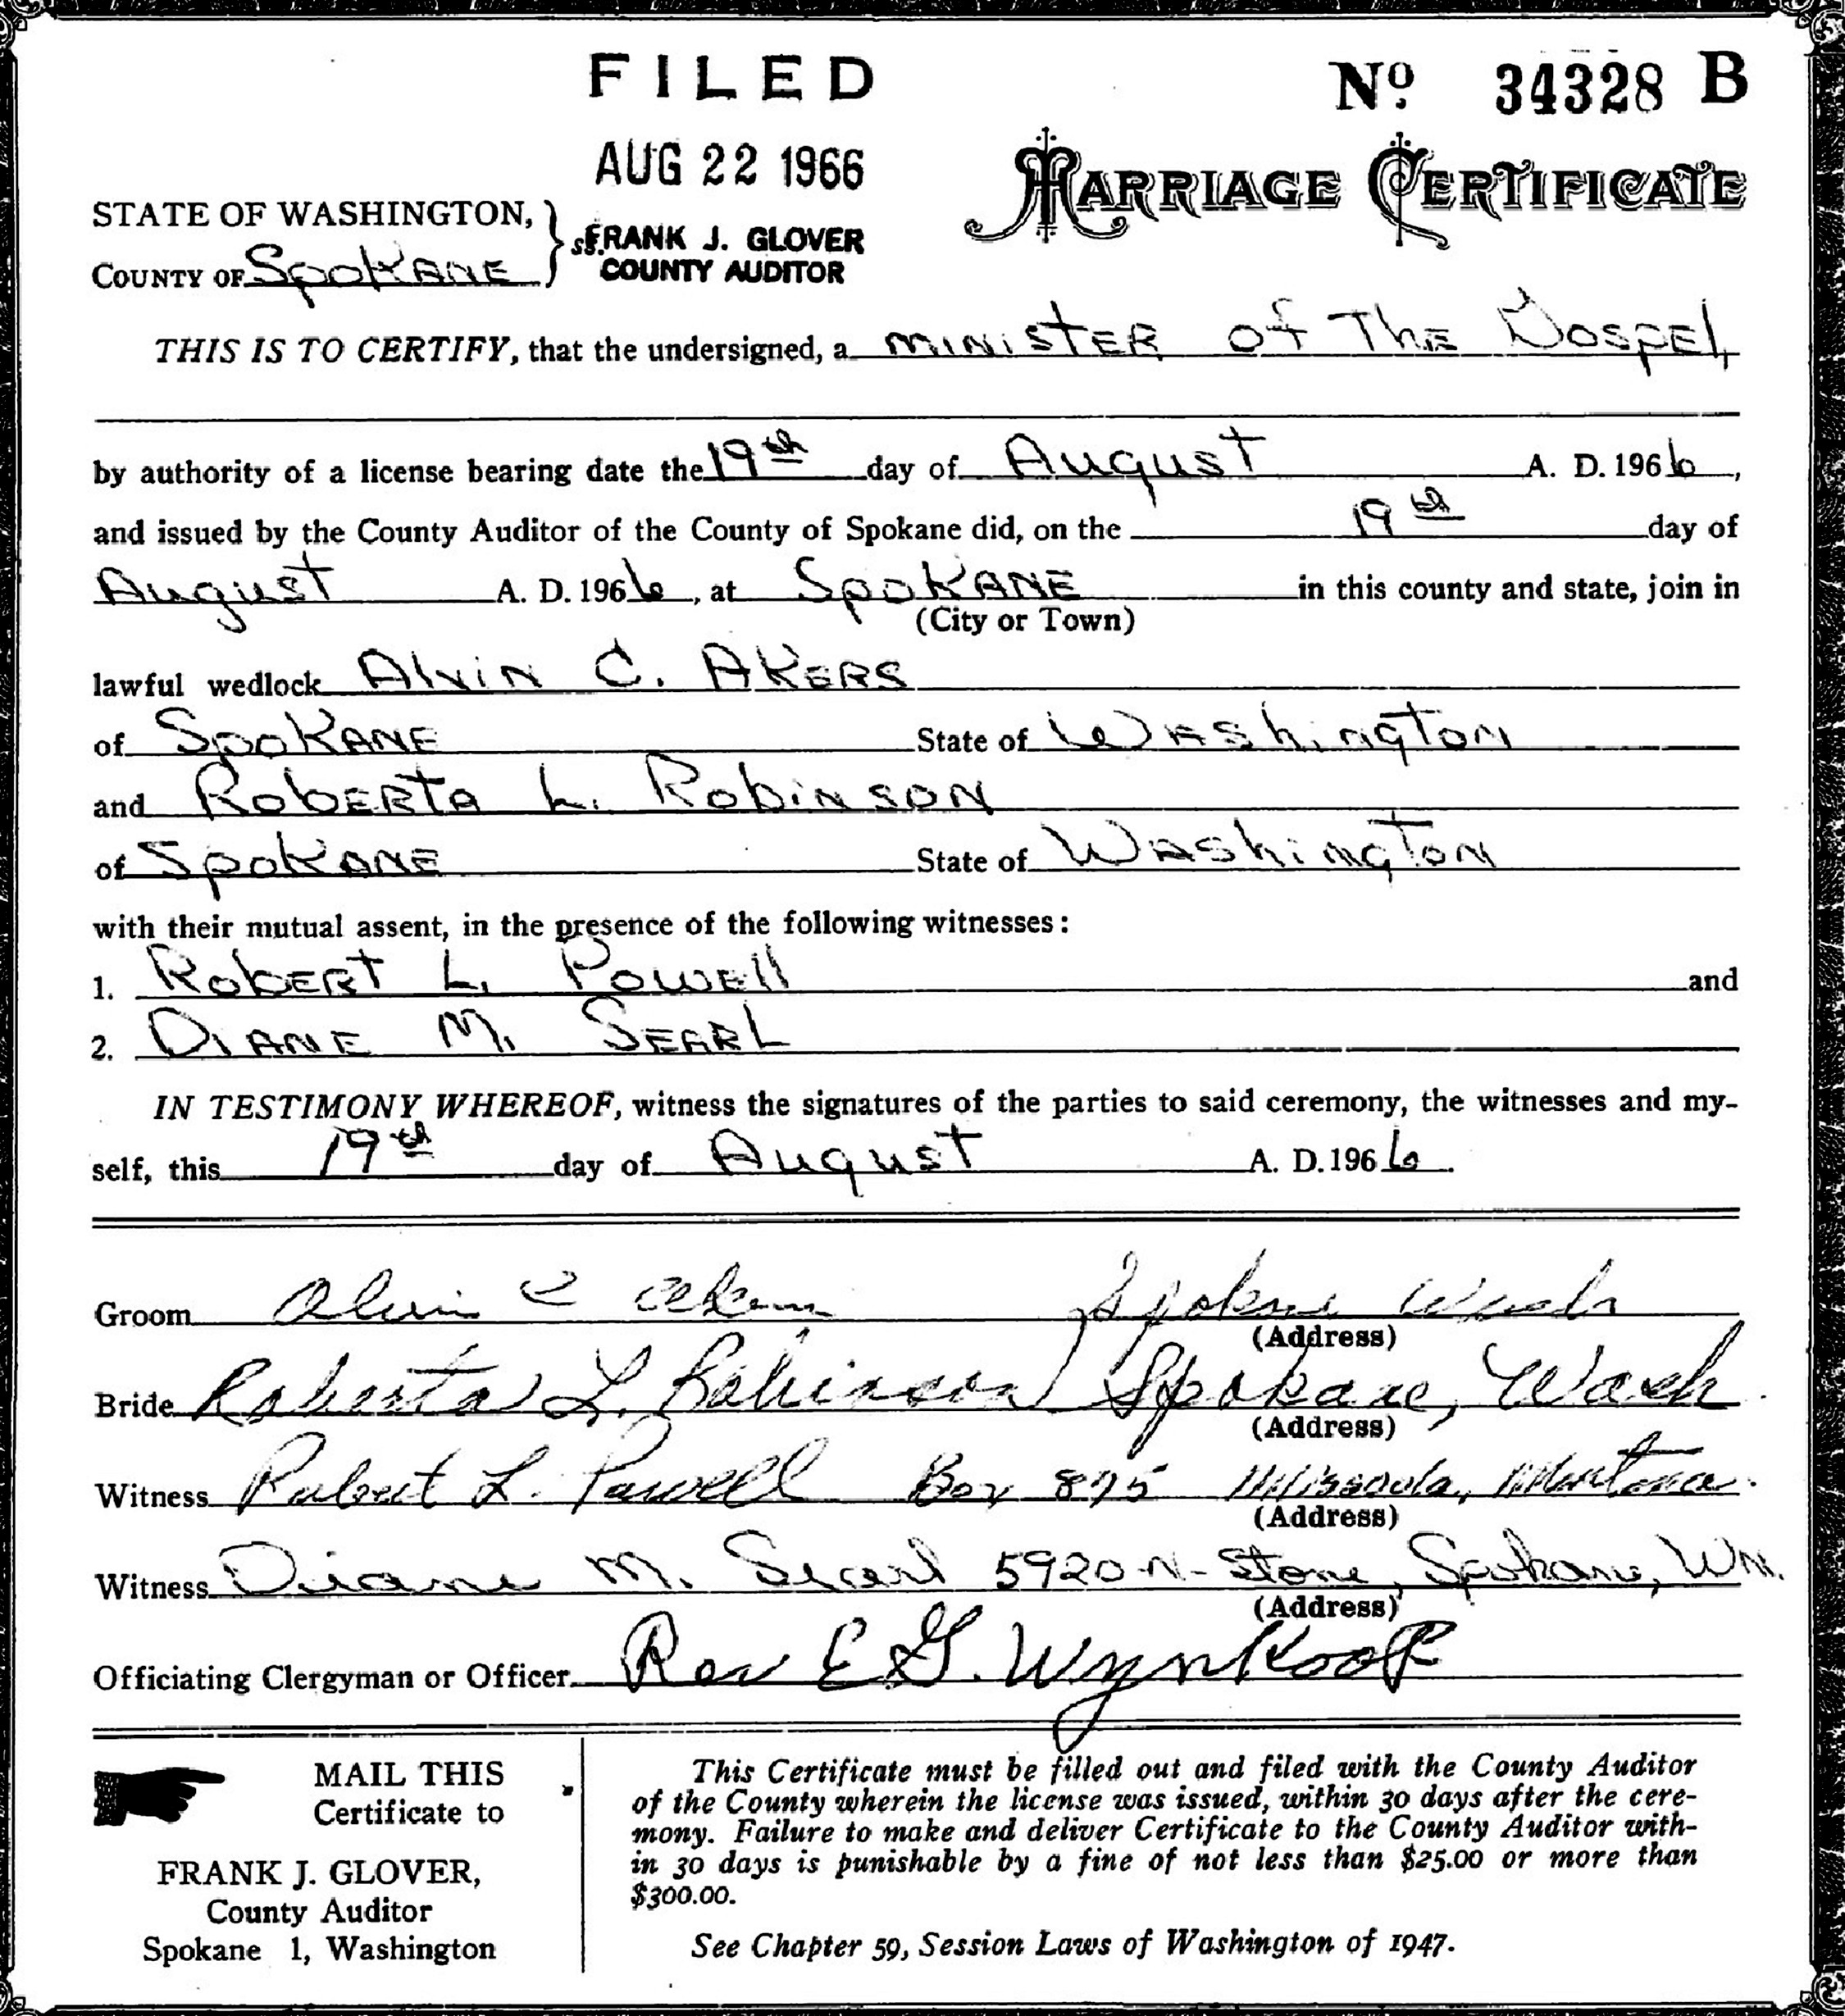 FILED
Nº 34328 B
AUG 22 1966
MARRIAGE CERTIFICATE
STATE OF WASHINGTON, } ss.
FRANK J. GLOVER
COUNTY OF SPOKANE
COUNTY AUDITOR
THIS IS TO CERTIFY, that the undersigned, a MINISTER of The Gospel,
by authority of a license bearing date the 19th day of August A. D. 1966,
and issued by the County Auditor of the County of Spokane did, on the 19th day of
August A. D. 1966, at SPOKANE in this county and state, join in
(City or Town)
lawful wedlock Alvin C. AKERS
of SPOKANE State of Washington
and ROBERTA L. ROBINSON
of SPOKANE State of Washington
with their mutual assent, in the presence of the following witnesses:
1. ROBERT L. POWELL and
2. DIANE M. SEARL
IN TESTIMONY WHEREOF, witness the signatures of the parties to said ceremony, the witnesses and my-
self, this 19th day of August A. D. 1966.
Groom Alvin C Akers Spokane Wash
(Address)
Bride Roberta L. Robinson Spokane, Wash.
(Address)
Witness Robert L. Powell Box 875 Missoula, Montana.
(Address)
Witness Diane M. Searl 5920 N. Stone, Spokane, WN.
(Address)
Officiating Clergyman or Officer Rev E G. Wynkoop
MAIL THIS
Certificate to
FRANK J. GLOVER,
County Auditor
Spokane 1, Washington
This Certificate must be filled out and filed with the County Auditor
of the County wherein the license was issued, within 30 days after the cere-
mony. Failure to make and deliver Certificate to the County Auditor with-
in 30 days is punishable by a fine of not less than $25.00 or more than
$300.00.
See Chapter 59, Session Laws of Washington of 1947.